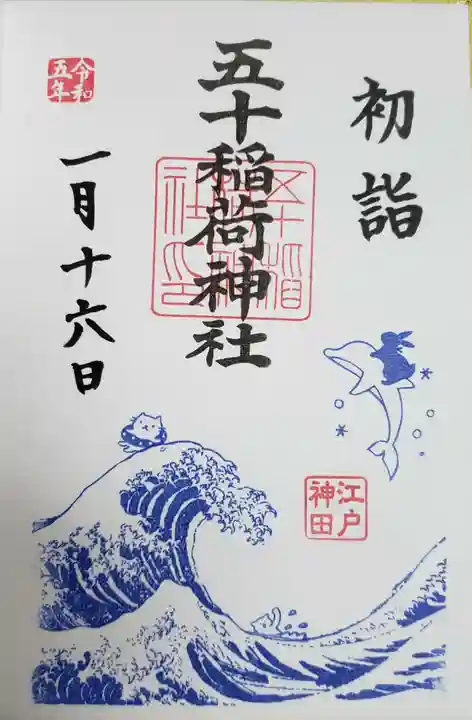 初詣
五十稲荷神社
令和
五年
一月十六日
江戸
神田